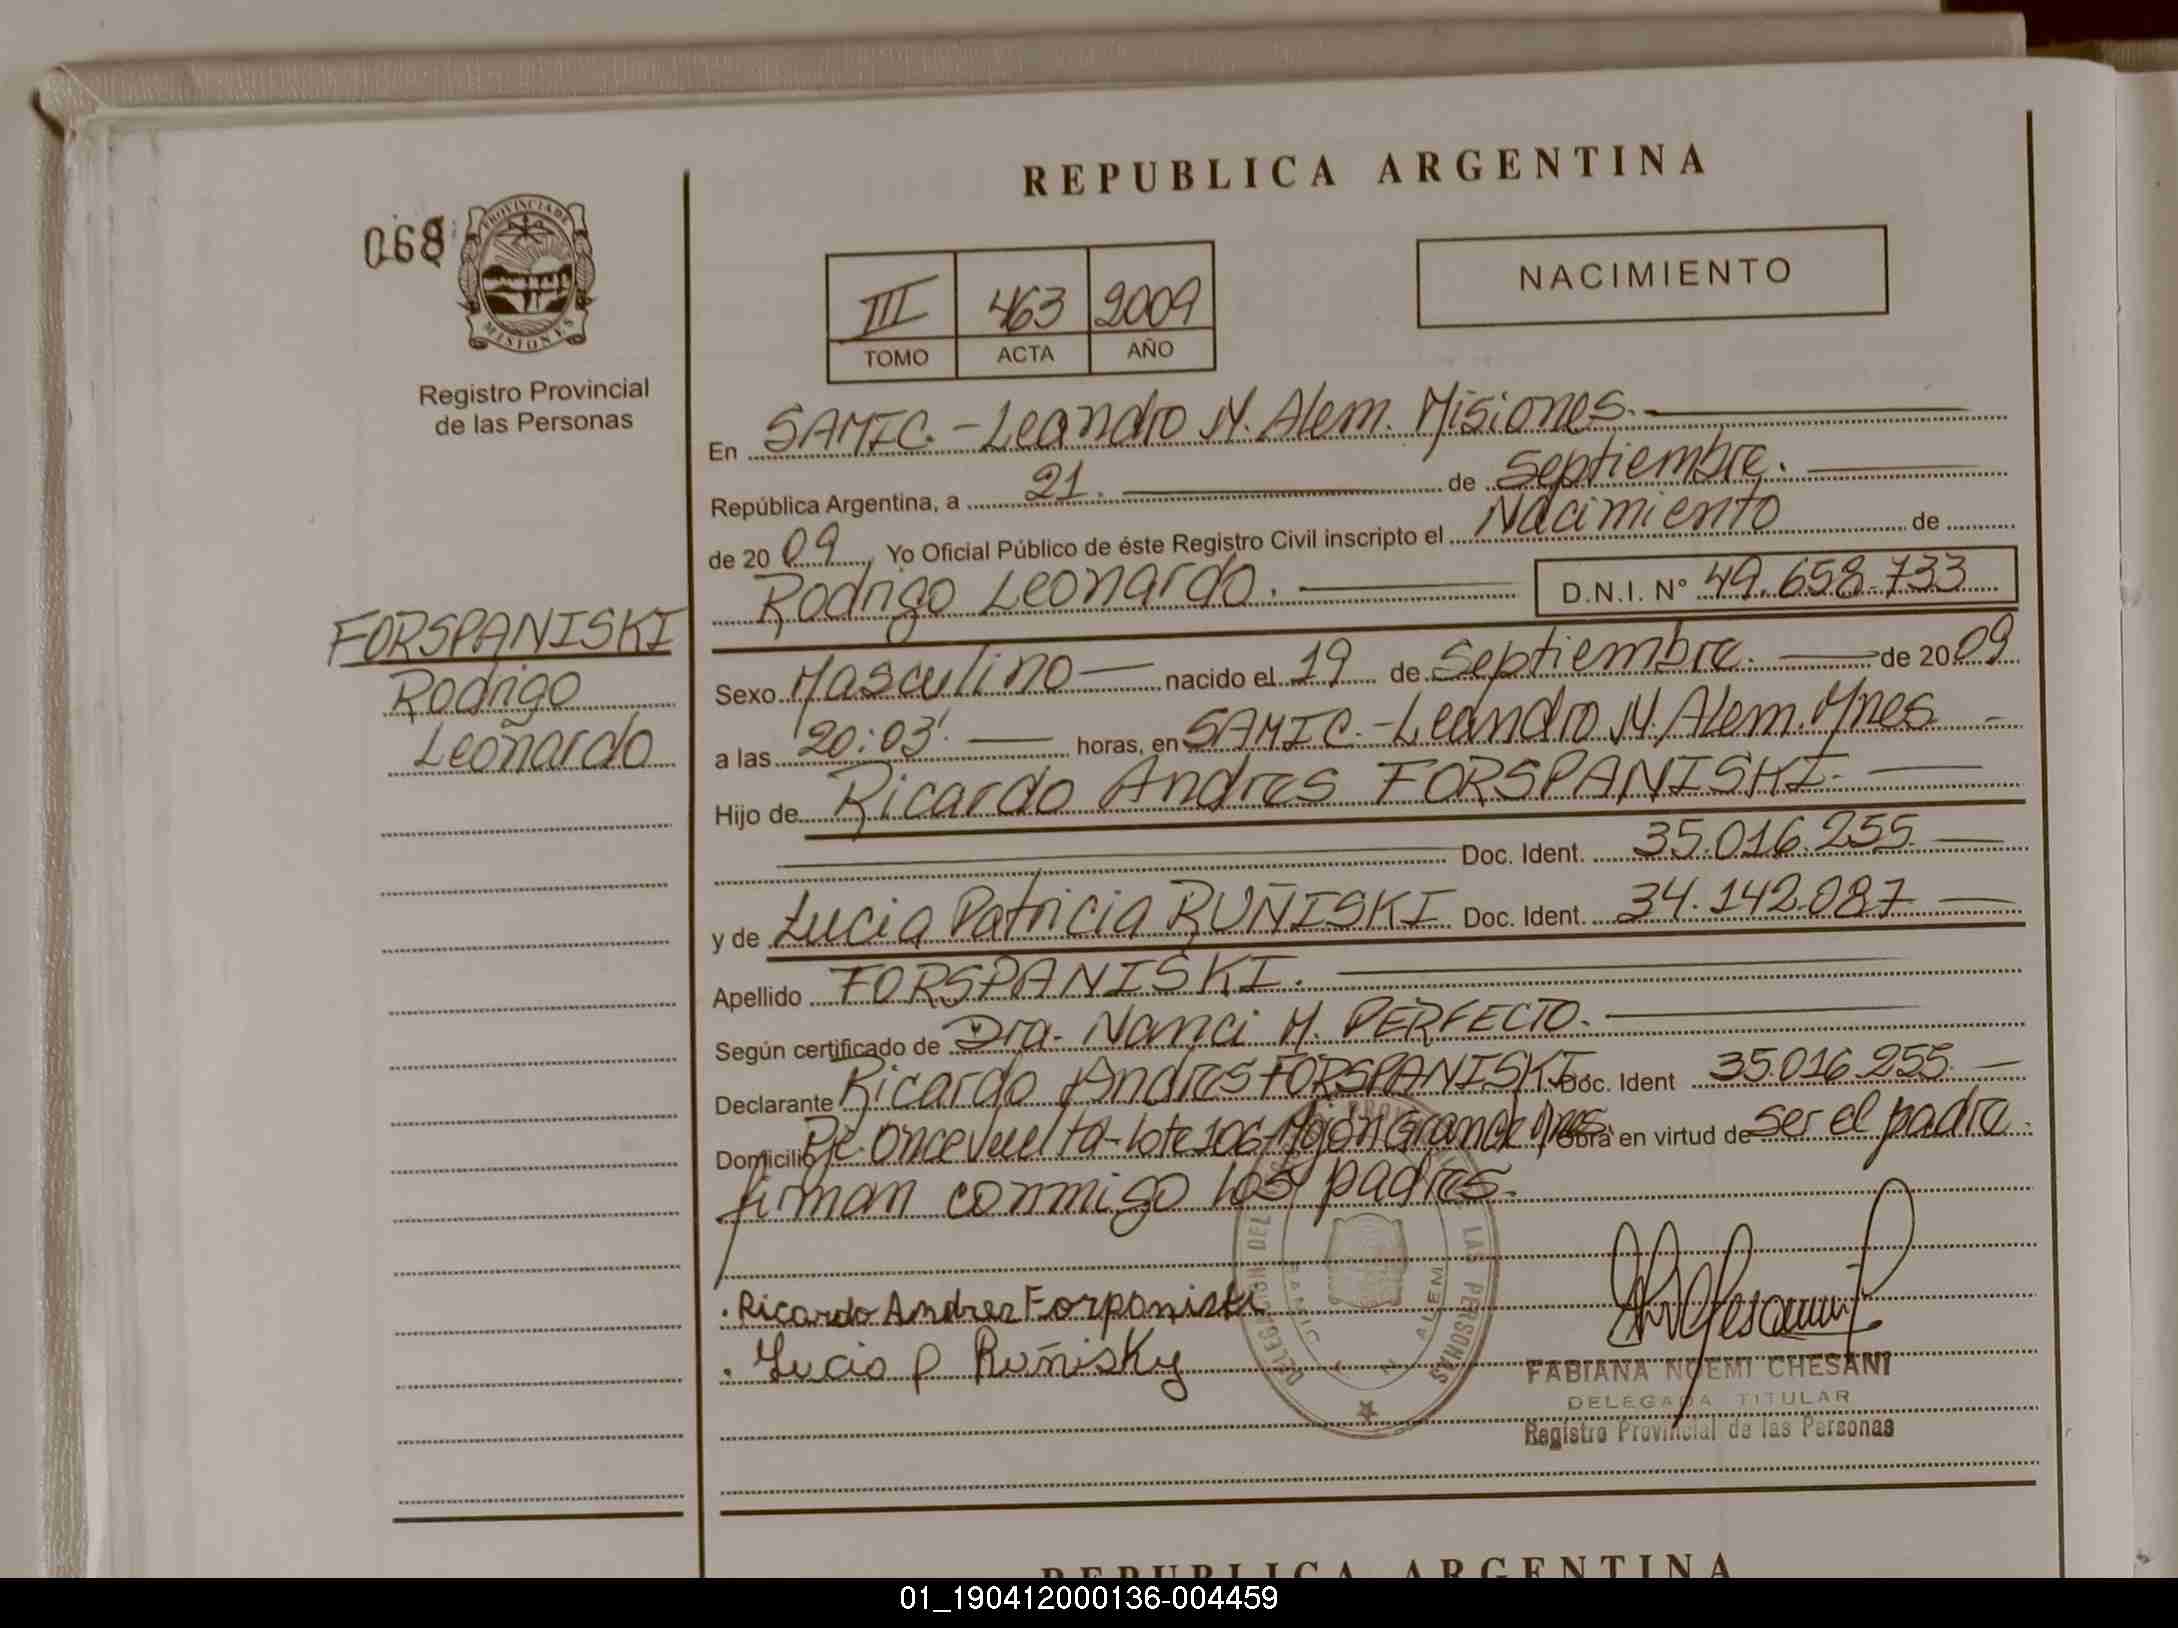 REPUBLICA ARGENTINA
068
PROVINCIA DE MISIONES
Registro Provincial
de las Personas
III 463 2009
TOMO ACTA AÑO
NACIMIENTO
En SAMIC.-Leandro N. Alem. Misiones.
República Argentina, a 21. de Septiembre.
de 20 09, Yo Oficial Público de éste Registro Civil inscripto el Nacimiento de
Rodrigo Leonardo. D.N.I. N° 49.658.733
FORSPANISKI
Rodrigo
Leonardo
Sexo Masculino nacido el 19 de Septiembre. de 20 09
a las 20:03' horas, en SAMIC.-Leandro N. Alem. Mnes
Hijo de Ricardo Andres FORSPANISKI.
Doc. Ident. 35.016.255
y de Lucia Patricia RUÑISKI Doc. Ident. 34.142.087
Apellido FORSPANISKI.
Según certificado de Dra. Nanci M. PERFECTO.
Declarante Ricardo Andres FORSPANISKI Doc. Ident 35.016.255
Domicilio Pje. Once Vuelta-lote 106 Mojón Grande Mnes. Obra en virtud de ser el padre
firman conmigo los padres.
. Ricardo Andres Forponiski
. Lucia P Ruñisky
DELEGACION DEL LAS PERSONAS
SAMIC L N ALEM
FABIANA NOEMI CHESANI
DELEGADA TITULAR
Registro Provincial de las Personas
REPUBLICA ARGENTINA
01_190412000136-004459